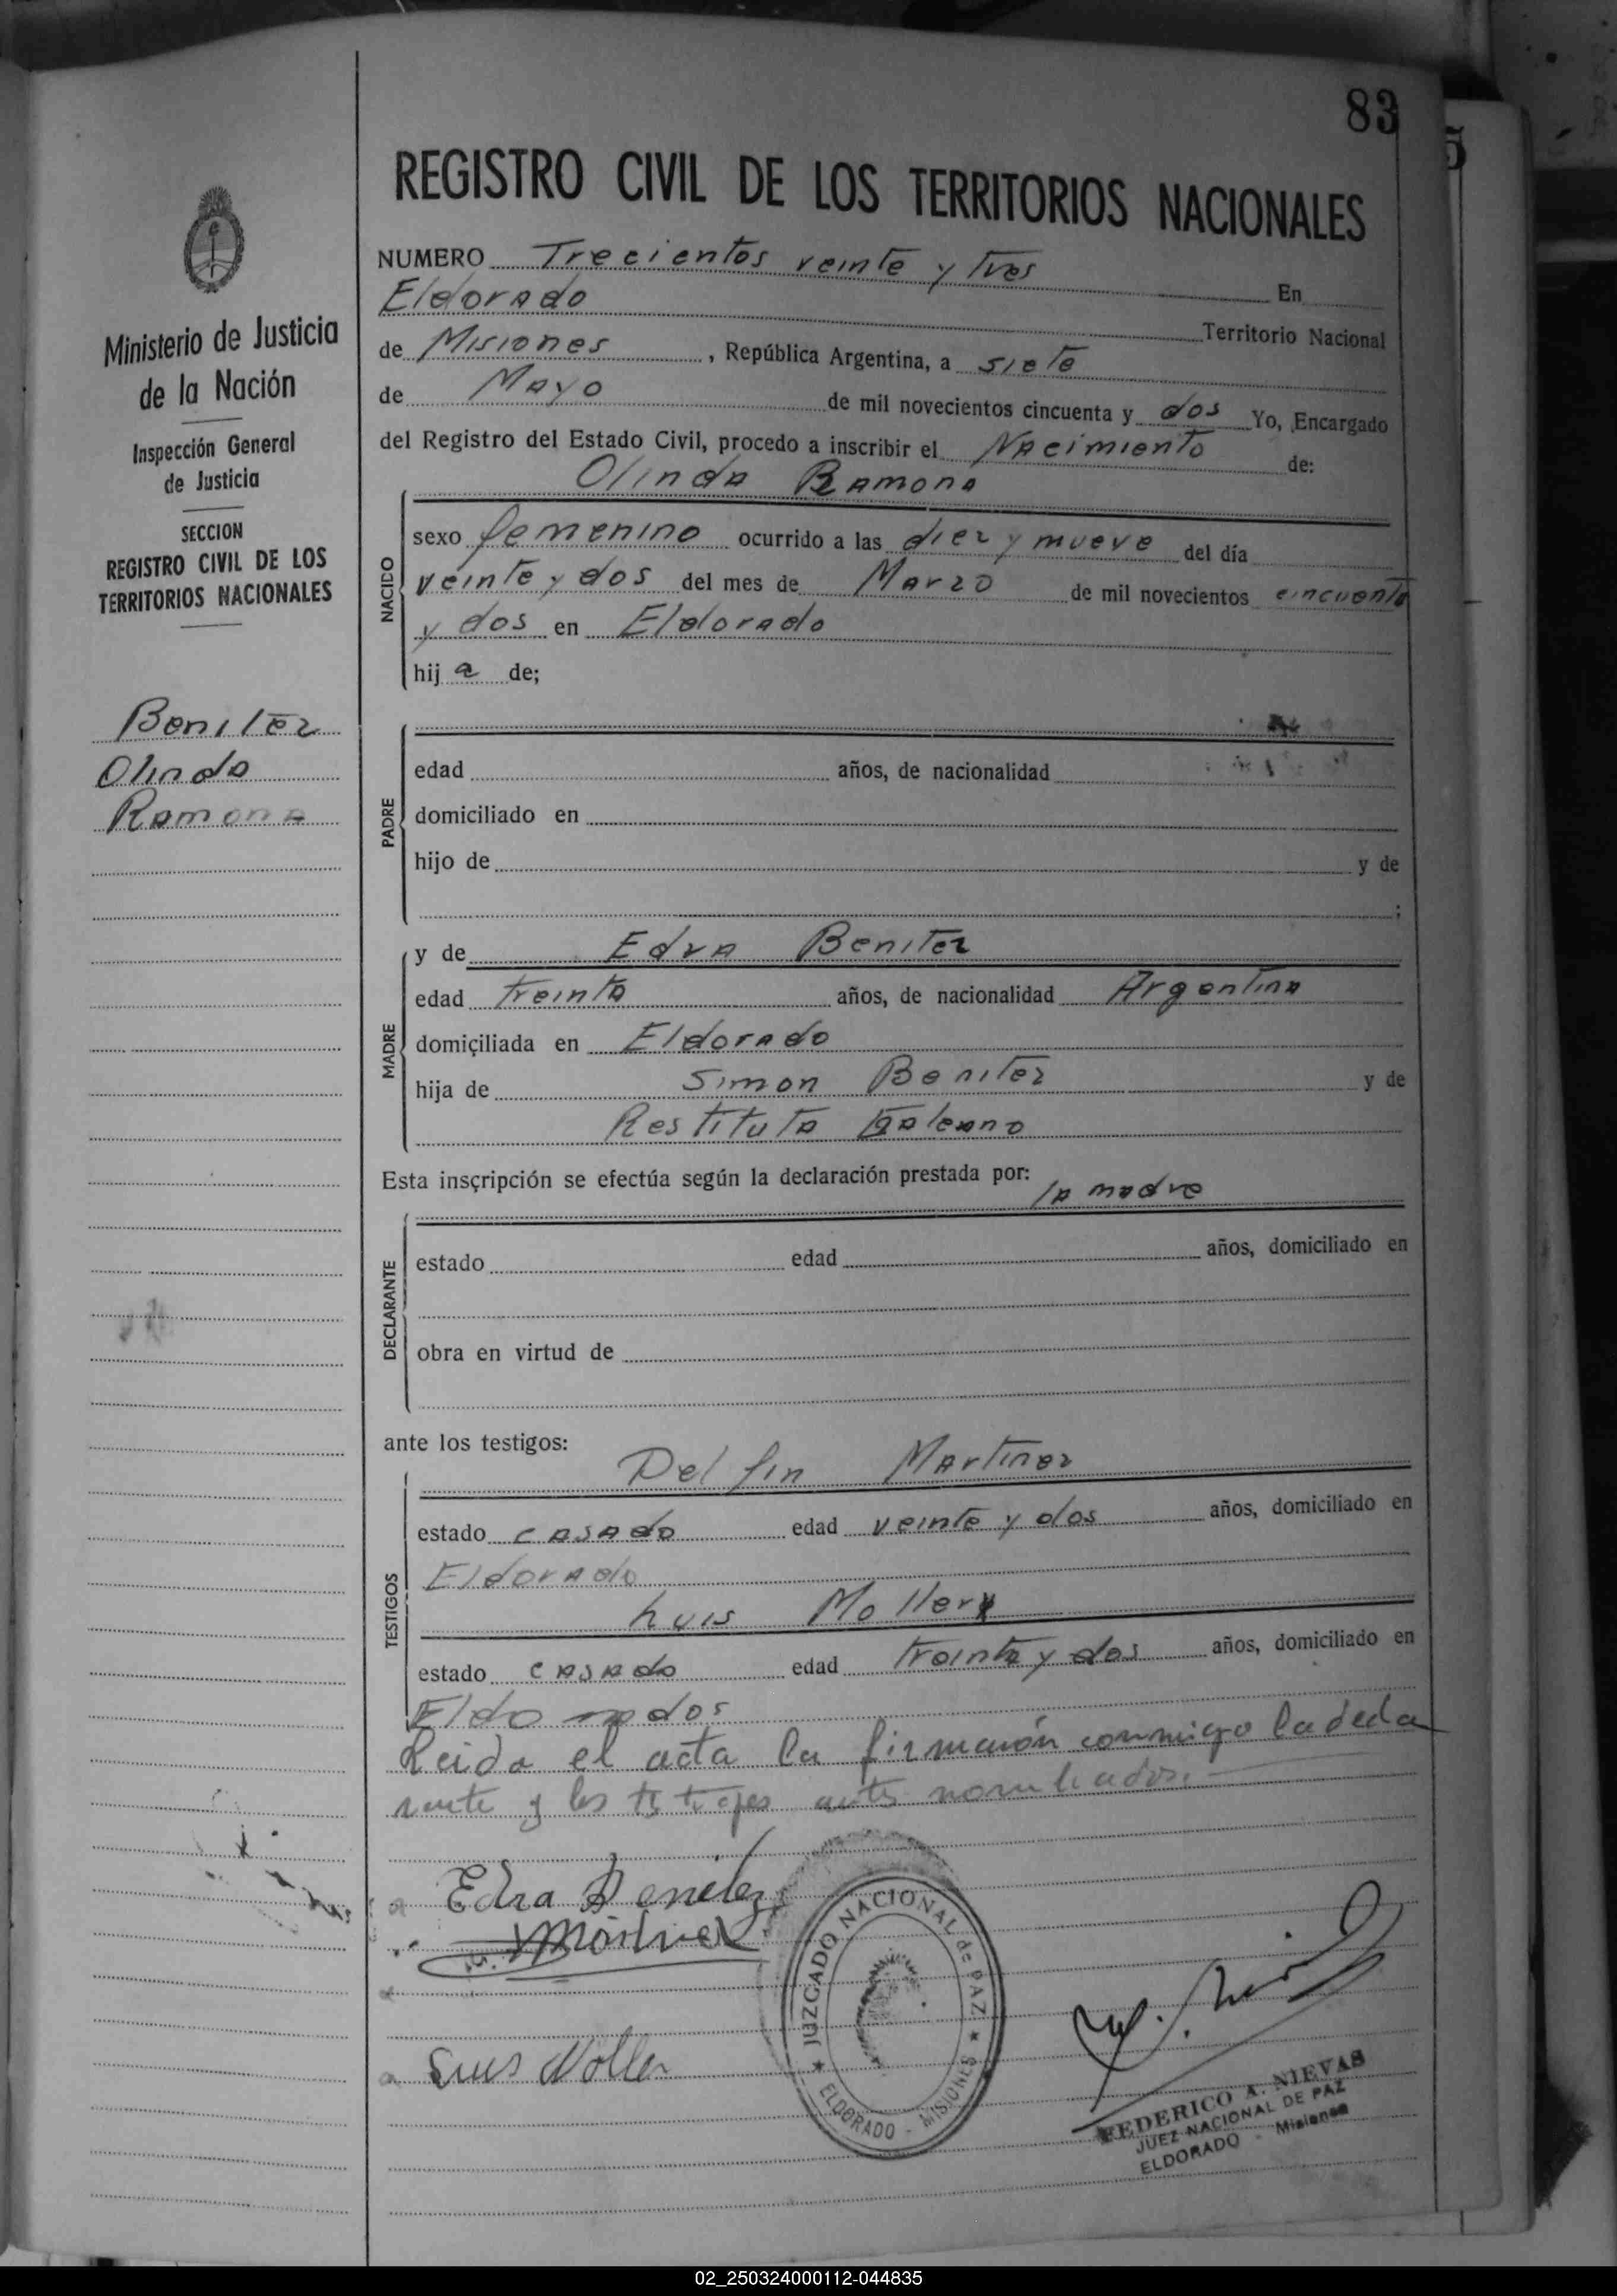 83
REGISTRO CIVIL DE LOS TERRITORIOS NACIONALES
NUMERO Trecientos veinte y tres En
Eldorado Territorio Nacional
de Misiones, República Argentina, a siete
de Mayo de mil novecientos cincuenta y dos Yo, Encargado
del Registro del Estado Civil, procedo a inscribir el Nacimiento de:
Olinda Ramona
NACIDO
sexo femenino ocurrido a las diez y nueve del día
veinte y dos del mes de Marzo de mil novecientos cincuenta
y dos en Eldorado
hija de;
PADRE
edad años, de nacionalidad
domiciliado en
hijo de y de
;
MADRE
y de Edra Benitez
edad treinta años, de nacionalidad Argentina
domiciliada en Eldorado
hija de Simon Benitez y de
Restituta Galeano
Esta inscripción se efectúa según la declaración prestada por: la madre
DECLARANTE
estado edad años, domiciliado en
obra en virtud de
ante los testigos:
TESTIGOS
Delfin Martinez
estado casado edad veinte y dos años, domiciliado en
Eldorado
Luis Moller
estado casado edad treinta y dos años, domiciliado en
Eldorados
Leida el acta la conmigo la decla
rante y los testigos antes nombrados.
Edra Benitez
Luis Moller
Ministerio de Justicia
de la Nación
Inspección General
de Justicia
SECCION
REGISTRO CIVIL DE LOS
TERRITORIOS NACIONALES
Benitez
Olinda
Ramona
JUZGADO NACIONAL de PAZ
ELDORADO - MISIONES
FEDERICO A. NIEVAS
JUEZ NACIONAL DE PAZ
ELDORADO - Misiones
02_250324000112-044835